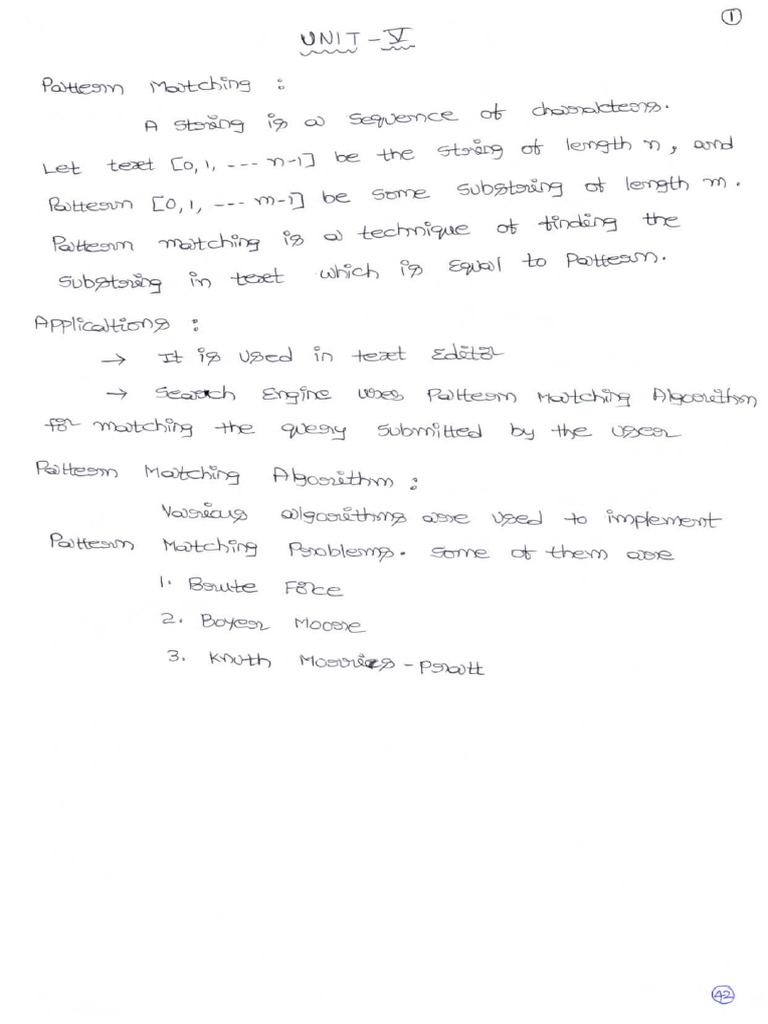 1
UNIT - V
Pattern Matching :
A string is a sequence of characters.
Let text [0, 1, --- n-1] be the string of length n, and
Pattern [0, 1, --- m-1] be some substring of length m.
Pattern matching is a technique of finding the
substring in text which is equal to Pattern.
Applications :
→ It is used in text Editor
→ Search Engine uses Pattern Matching Algorithm
for matching the query submitted by the user
Pattern Matching Algorithm :
Various algorithms are used to implement
Pattern Matching Problems. Some of them are
1. Brute Force
2. Boyer Moore
3. Knuth Morries - Pratt
42